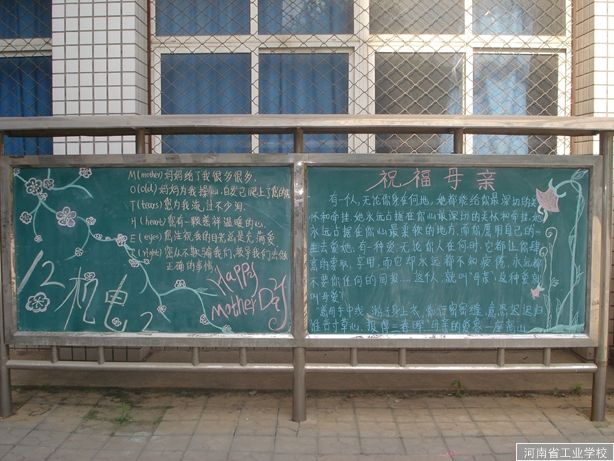 M(mother)妈妈给了我很多很多,
O(old)妈妈为我操心,白发已爬上了您的头
T(tears)您为我流泪不少
H(heart)您有一颗慈祥温暖的心
E(eyes)您注视我的目光总是充满爱
R(right)您从不欺骗我们,教导我们去做
正确的事情
Happy
Mother
12机电2
祝福母亲
有一个人,无论你身在何地,她都能给你最深切的关
怀和牵挂,她永远占据在你心最深切的关怀和牵挂,她
永远占据在你心最柔软的地方,而你愿用自己的一
生去爱她,有一种爱,无论你人在何时,它都让你
索取、享用,而它却永远都不知疲倦,永远都
不要你任何的回报……这个人,就叫"母亲"这种爱则
叫母爱"
慈母手中线,游子身上衣,临行密密缝,意恐迟迟归
谁言寸草心,报得三春晖,母亲的爱是一座高山
河南省工业学校